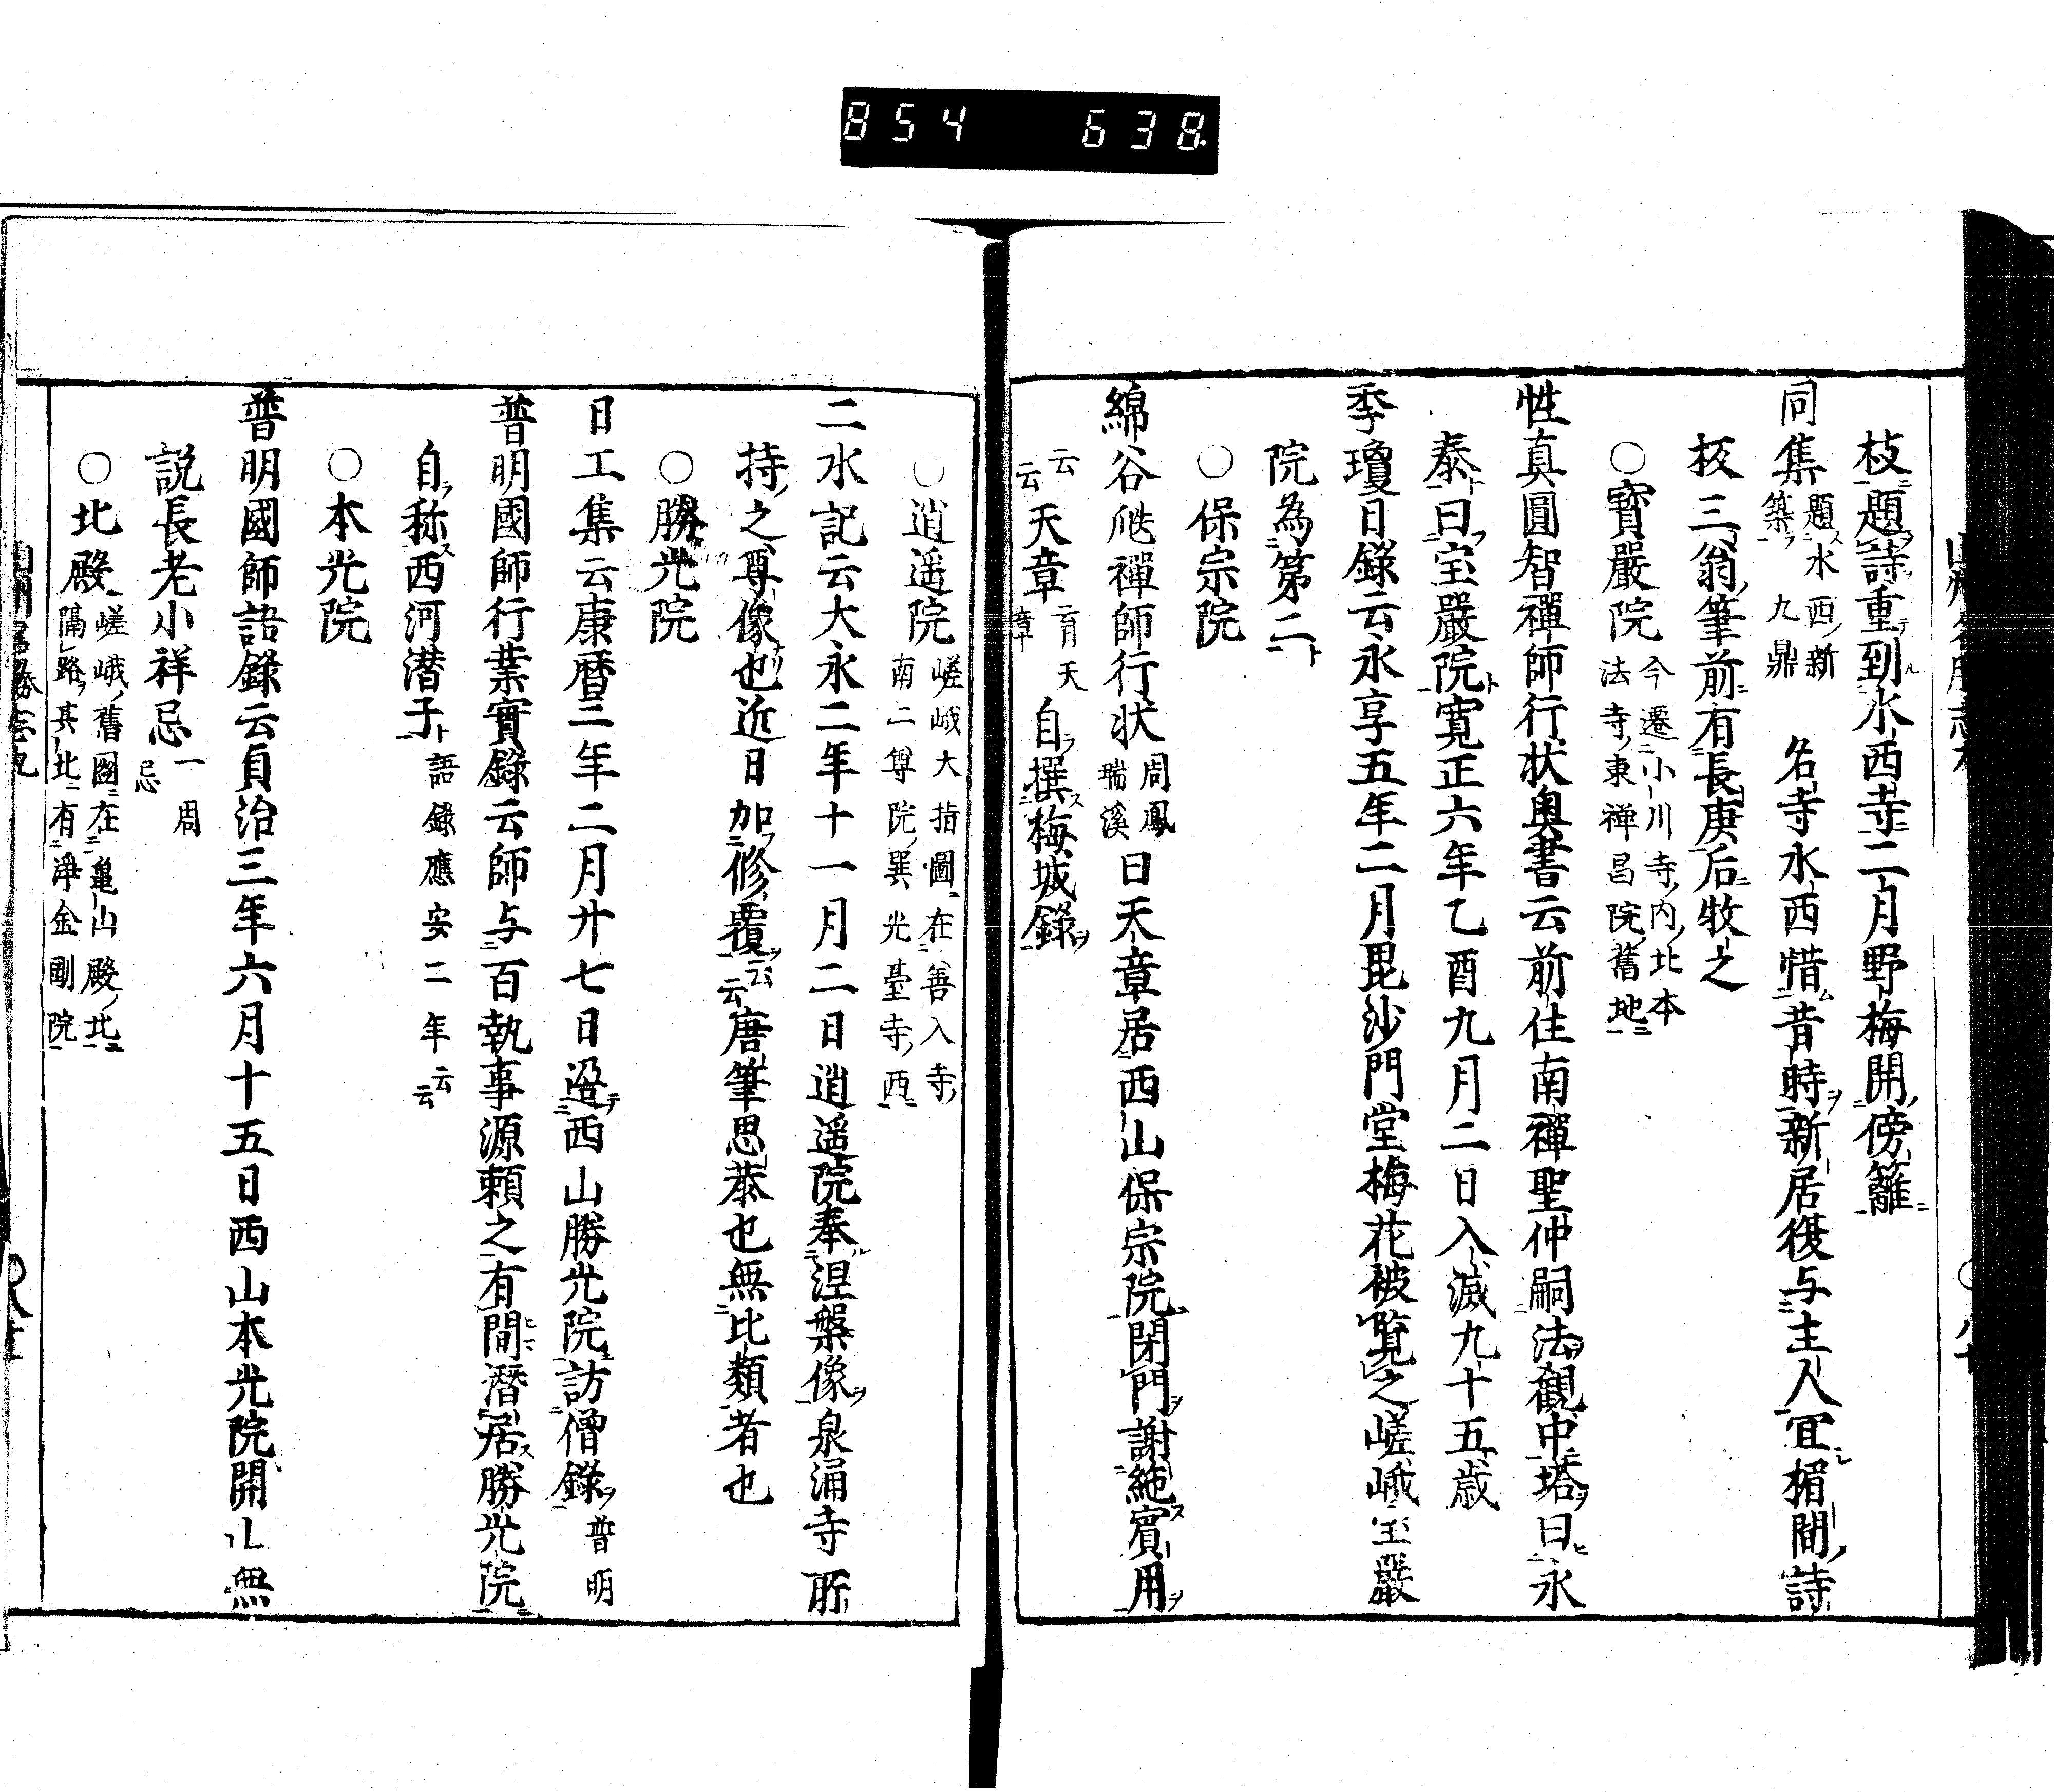 854 638
枝題詩重到水西寺二月野梅開傍籬
同集題水西新築九鼎 名寺水西惜昔時新居復与主人宜楣間詩
板三翁筆前有長庚后牧之
○寳嚴院今遷小川寺内北本法寺東禅昌院舊地
性真圓智禪師行状奥書云前住南禪聖仲嗣法觀中塔曰永
泰曰宝嚴院寛正六年乙酉九月二日入滅九十五歳
季瓊日録云永享五年二月毘沙門堂梅花被覧之嵯峨宝嚴
院為第二
○保宗院
綿谷瓞禪師行状周鳳瑞溪日天章居西山保宗院閉門謝絶賓用
云云天章云育天章自撰梅城錄
○逍遥院嵯峨大指圖在善入寺南二尊院巽光臺寺西
二水記云大永二年十一月二日逍遥院奉涅槃像泉涌寺所
持之尊像也近日加修覆云云唐筆思恭也無比類者也
○勝光院
日工集云康暦二年二月廿七日過西山勝光院訪僧錄普明
普明國師行業實錄云師与百執事源頼之有間潛居勝光院
自称西河潜子語録應安二年云云
○本光院
普明國師語錄云貞治三年六月十五日西山本光院開山無
説長老小祥忌一周忌
○北殿嵯峨舊圖在亀山殿北隔路其北有淨金剛院